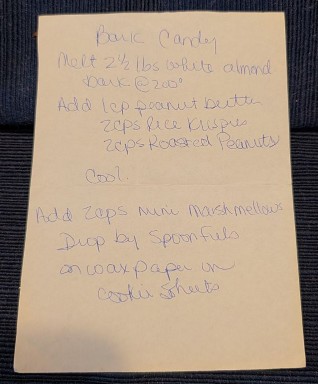 Bark Candy
Melt 2½ lbs white almond
bark @ 200°
Add 1cp peanut butter
2cps Rice Krispies
2cps Roasted Peanuts
Cool.
Add 2cps mini Marshmellows
Drop by Spoonfuls
on wax paper on
Cookie Sheets